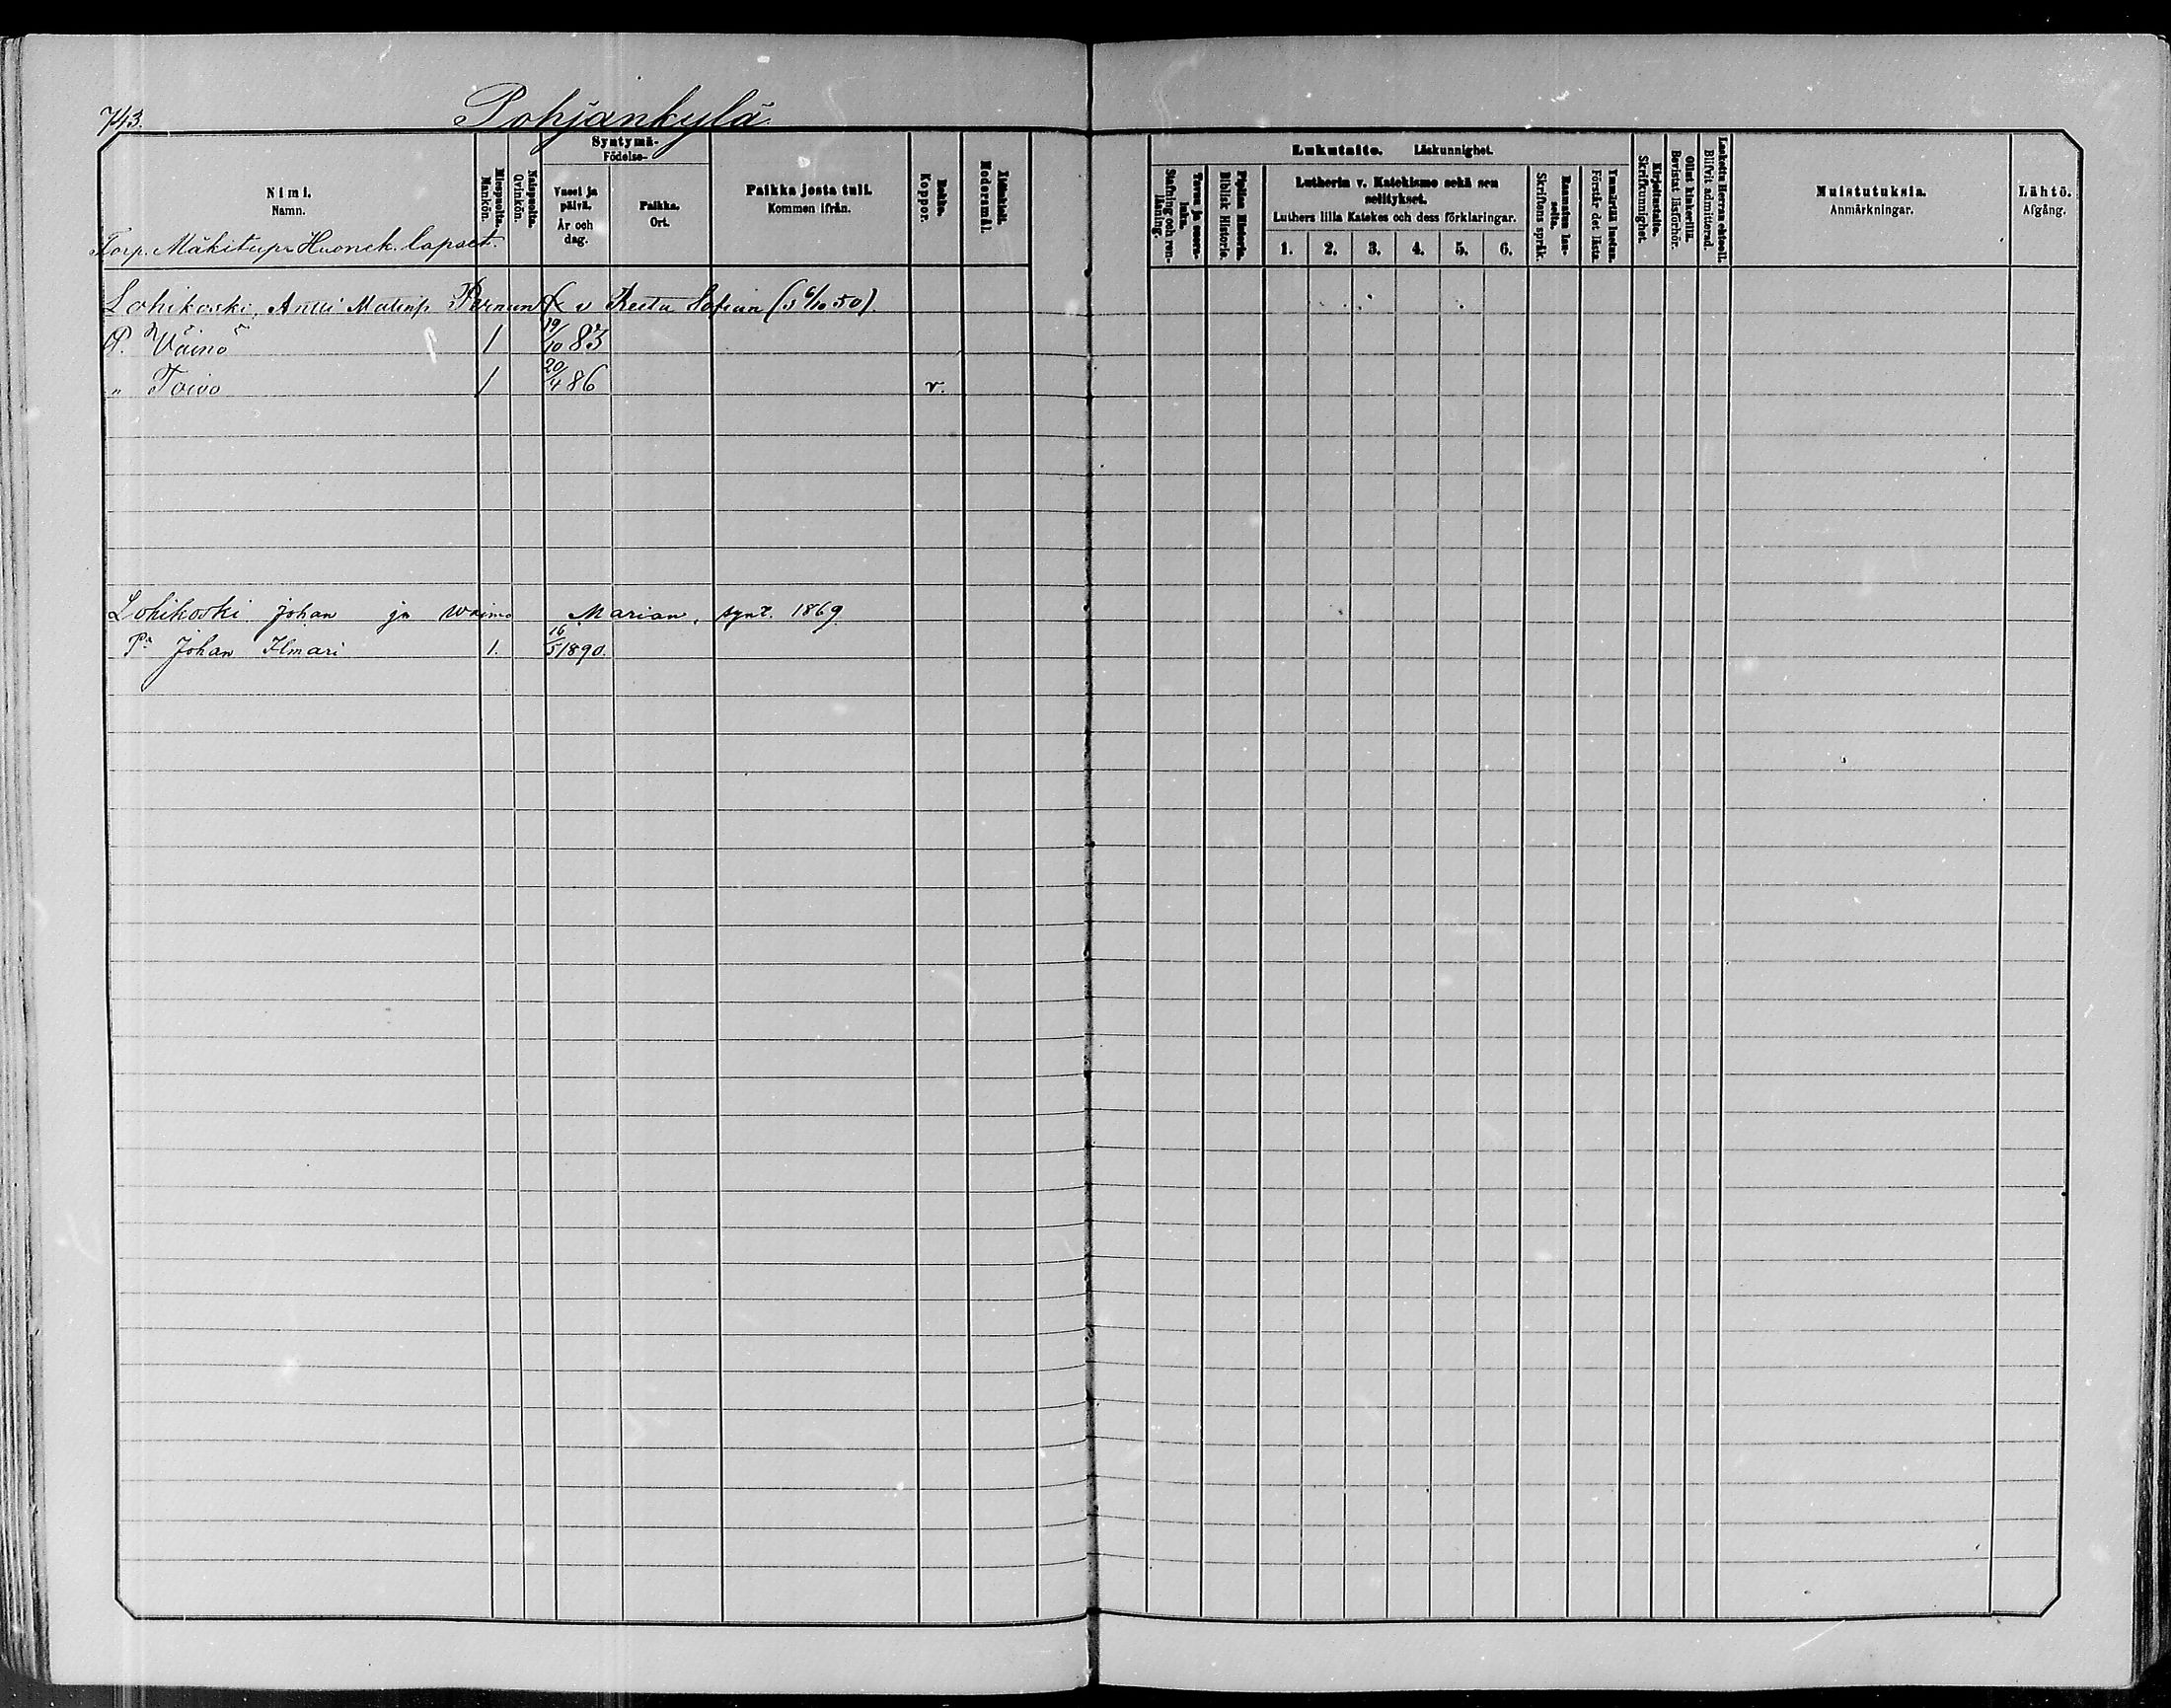 743.
Pohjankylä
Nimi.
Namn.
Miespuolta.
Mankön.
Naispuolta.
Qvinkön.
Syntymä-
Födelse-
Vuosi ja päivä.
År och dag.
Paikka.
Ort.
Paikka josta tuli.
Kommen ifrån.
Rokko.
Koppor.
Äidinkieli.
Modersmål.
Lukutaito. Läskunnighet.
Tavuu ja suora-luku.
Stafning och ren-läsning.
Piplian Historia.
Biblisk Historie.
Lutherin v. Katekismo sekä sen selitykset.
Luthers lilla Katekes och dess förklaringar.
1. 2. 3. 4. 5. 6.
Raamatun lau-seita.
Skriftens språk.
Ymmärtää luetun.
Förstår det lästa.
Kirjoitustaito.
Skrifkunnighet.
Ollut kinkerillä.
Bevistat läsförhör.
Laskettu Herran ehtoolli.
Blifvit admitterad.
Muistutuksia.
Anmärkningar.
Lähtö.
Afgång.
Torp. Mäkitup. Huonek. lapset.
Lohikoski, Antti Matinp. v Sofian (s 6/10 50).
P. Väinö 1 19/10 83
" Toivo 1 20/4 86 v.
Lohikoski Johan ja waimo Marian, synt. 1869
P. Johan Ilmari 1. 16/5 1890.